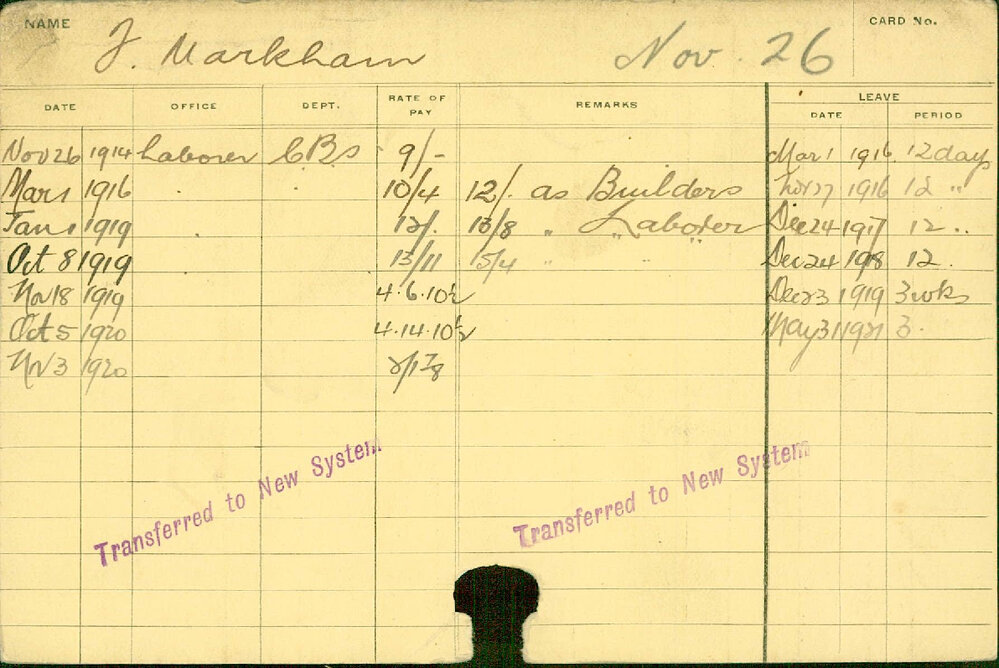 NAME J. Markham Nov. 26 CARD No.
DATE OFFICE DEPT. RATE OF PAY REMARKS LEAVE
DATE PERIOD
Nov 26 1914 Laborer CBs 9/- Mar 1 1916 12 days
Mar 1 1916 " " 10/4 12/- as Builders Nov 27 1916 12 "
Jan 1 1919 12/- 13/8 " " Laborer Dec 24 1917 12 "
Oct 8 1919 13/11 15/4 " " " Dec 24 1918 12 "
Nov 18 1919 4.6.10½ Dec 23 1919 3 wks
Oct 5 1920 4.14.10½ May 31 1921 3 "
Nov 3 1920 2/1⅞
Transferred to New System
Transferred to New System